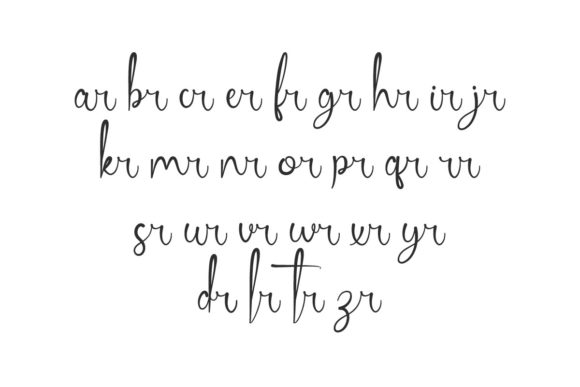 ar br cr er fr gr hr ir jr
kr mr nr or pr qr rr
sr ur vr wr xr yr
dr lr tr zr